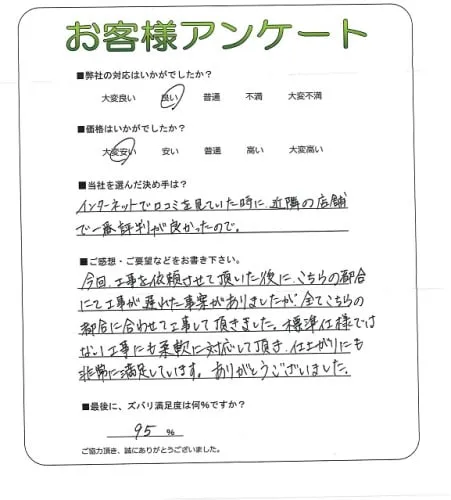 お客様アンケート
■弊社の対応はいかがでしたか？
大変良い 良い 普通 不満 大変不満
■価格はいかがでしたか？
大変安い 安い 普通 高い 大変高い
■当社を選んだ決め手は？
インターネットで口コミを見ていた時に、近隣の店舗
で一番評判が良かったので。
■ご感想・ご要望などをお書き下さい。
今回、工事を依頼させて頂いた後に、こちらの都合
にて工事が遅れた事案がありましたが、全てこちらの
都合に合わせて工事して頂きました。標準仕様では
ない工事にも柔軟に対応して頂き、仕上がりにも
非常に満足しています。ありがとうございました。
■最後に、ズバリ満足度は何%ですか？
95 %
ご協力頂き、誠にありがとうございました。